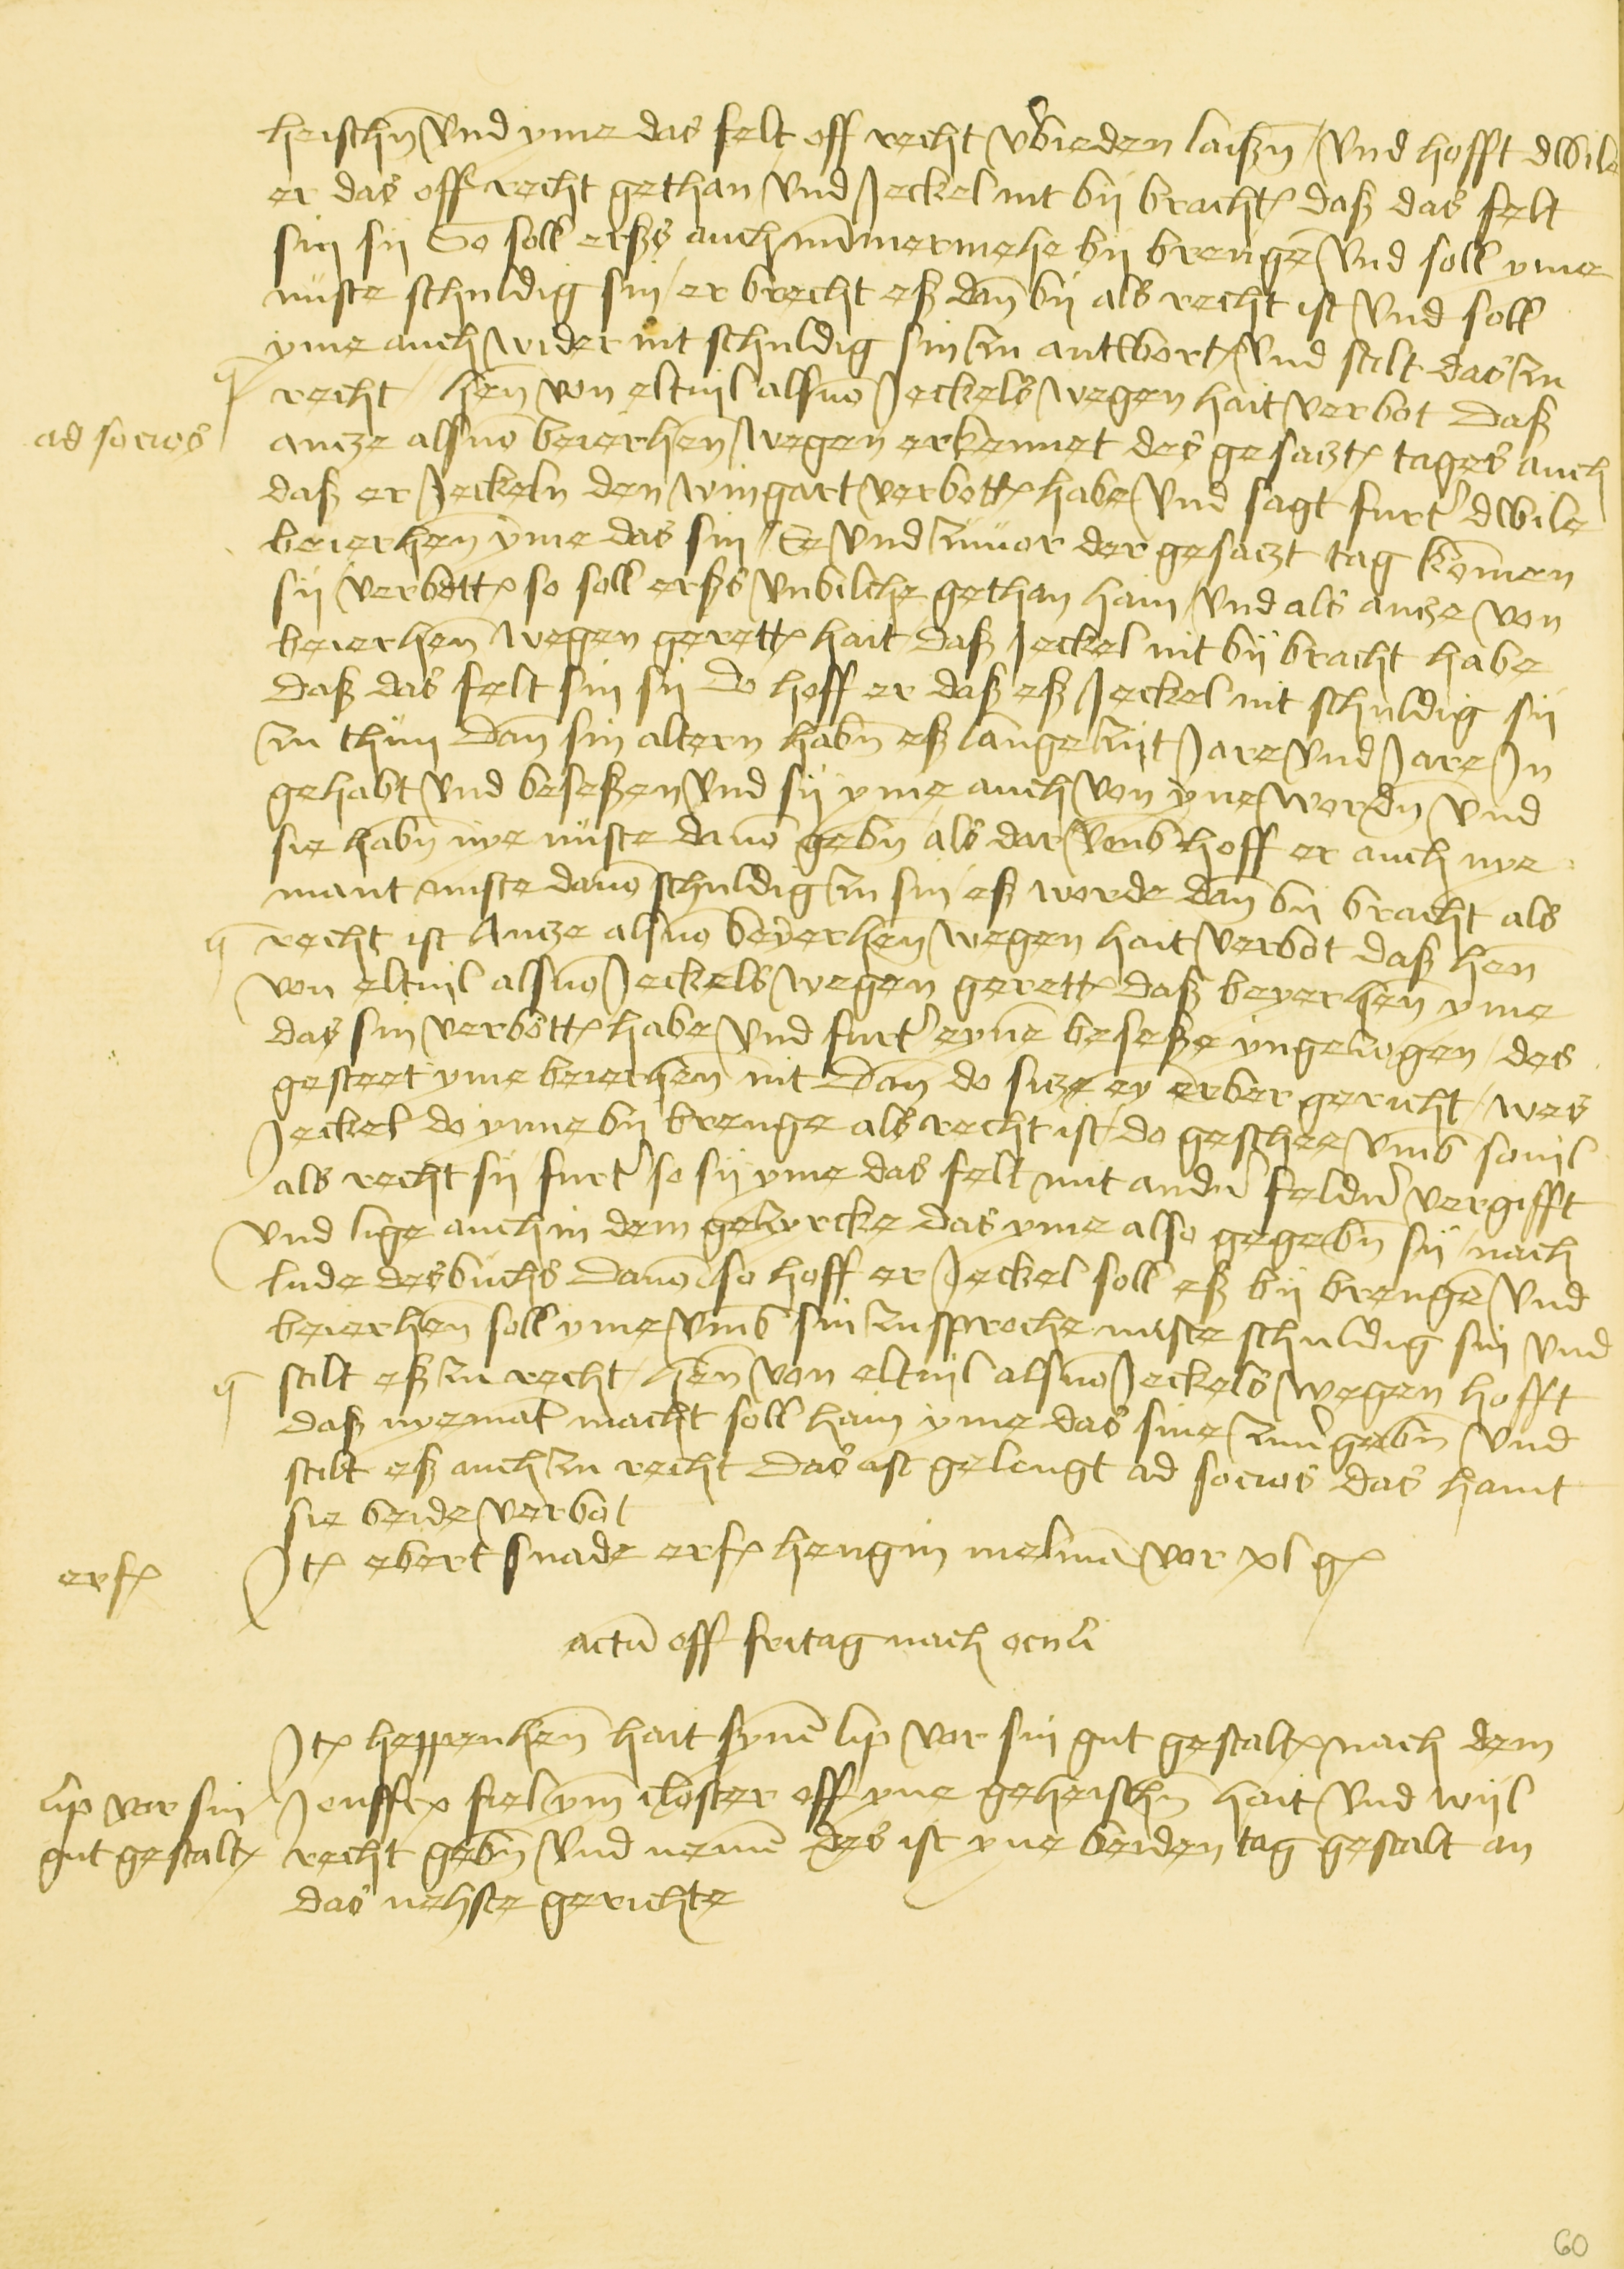 heischn̄ vnd yme das felt off recht v̾bieden laißn̄ / vnd hofft dwile
er das off recht gethan vnd Jeckel nit bÿ bracht daß das felt
sin sÿ So soll erßs auch nūmermehe bÿ brengē vnd soll yme
nuste schuldig sin / er brecht eß dan̄ bÿ als recht ist vnd soll
yme auch wider nit schuldig sin zu antwort vnd stilt das zu
recht / Hen̄ von eltuil als vō Jeckels wegen hait verbot daß
ad socios
ancze als vō beierhen̄ wegen erkennet des gesaczt tages auch
daß er Jeckeln den wingart verbott habe vnd sagt furt̾ dwile
beierhen̄ yme das sin Ee vnd zuuor der gesaczt tag kōmen
sÿ verbott so soll erßs vnbilche gethan hain / vnd als ancze von
beierhen̄ wegen gerett hait / daß Jeckel nit bÿ bracht habe
daß das felt sin sÿ Do hoff er daß eß Jeckel nit schuldig sÿ
zu thun Dan̄ sin altern habn̄ eß lange zijt Jare vnd Jare In
gehabt vnd beseßen vnd sÿ yme auch von yne wordn̄ vnd
sie habn̄ nye nuste dauō gebn̄ als dar vmb hoff er auch nye
mant nuste dauō schuldig zu sin / eß worde dan̄ bÿ bracht als
recht ist Ancze als vō beyerhen̄ wegen hait verbot daß Hen̄
von eltuil als vō Jeckels wegen gerett daß beyerhen̄ yme
das sin verbott habe vnd furt̾ eynē beseße yngeczogen / des
gesteet yme beierhen̄ nit Dan̄ do sicze ey erber gericht / wes
Jeckel do yme bÿ brenge als recht ist / do geschee vmb souil
als recht sÿ furt̾ so sÿ yme das felt mit andn̾ feldn̾ vergifft
vnd lige auch in dem gezircke das yme also gegebn̄ sÿ / nach
lude des buchs Dauō so hoff er Jeckel soll eß bÿ brengē vnd
beierhen̄ soll yme vmb sin zusproche nuste schuldig sin vnd
stilt eß zu recht / Hen̄ von eltuil als vō Jeckels wegen hofft
daß nyemāt macht soll hain yme das sine zuu̾gebn̄ vnd
stilt eß auch zu recht Das ist gelengt ad socios das haint
sie beide verbot
erf
It ebert snade erf hengin melmā vor xl g
actū off fritag nach oculi
It heppenhen̄ hait synē lip vor sin gut gestalt nach dem
lip vor sin
gut gestalt
Jonffr fiel ym closter off yne geheischn̄ hait vnd wijl
recht gebn̄ vnd nemē des ist yne beiden tag gestalt an
das nehste gerichte
60